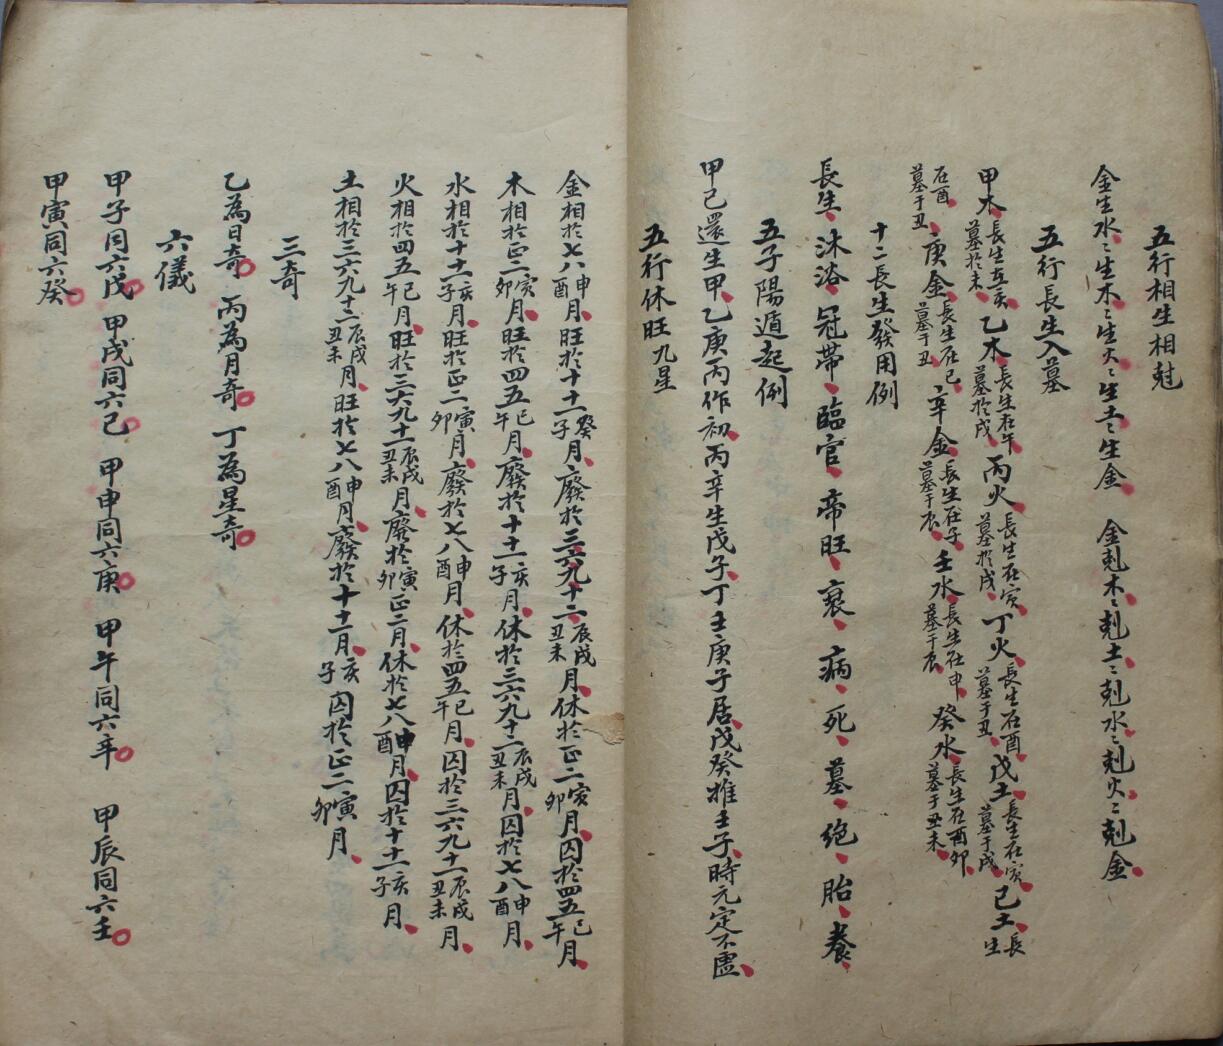 五行相生相尅
金生水〻生木〻生火〻生土〻生金　金尅木〻尅土〻尅水〻尅火〻尅金
五行長生入墓
甲木長生在亥墓於未乙木長生在午墓於戌丙火長生在寅墓於戌丁火長生在酉墓于丑戊土長生在寅墓于戌己土長生
在酉墓于丑庚金長生在巳墓于丑辛金長生在子墓于辰壬水長生在申墓于辰癸水長生在酉卯墓于丑未
十二長生發用例
長生沐浴冠帶臨官帝旺衰病死墓絶胎養
五子陽遁起例
甲己還生甲乙庚丙作初丙辛生戊子丁壬庚子居戊癸推壬子時元定不虛
五行休旺九星
金相於七八申酉月旺於十十一癸子月廢於三六九十二辰戌丑未月休於正二寅卯月囚於四五巳午月
木相於正二寅卯月旺於四五巳午月廢於十十一亥子月休於三六九十二辰戌丑未月囚於七八申酉月
水相於十十一亥子月旺於正二寅卯月廢於七八申酉月休於四五巳午月囚於三六九十二辰戌丑未月
火相於四五巳午月旺於三六九十二辰戌丑未月廢於寅卯正二月休於七八申酉月囚於十十一亥子月
土相於三六九十二辰戌丑未月旺於七八申酉月廢於十十一月亥子囚於正二寅卯月
三奇
乙為日奇丙為月奇丁為星奇
六儀
甲子同六戊　甲戌同六己　甲申同六庚　甲午同六辛　甲辰同六壬
甲寅同六癸